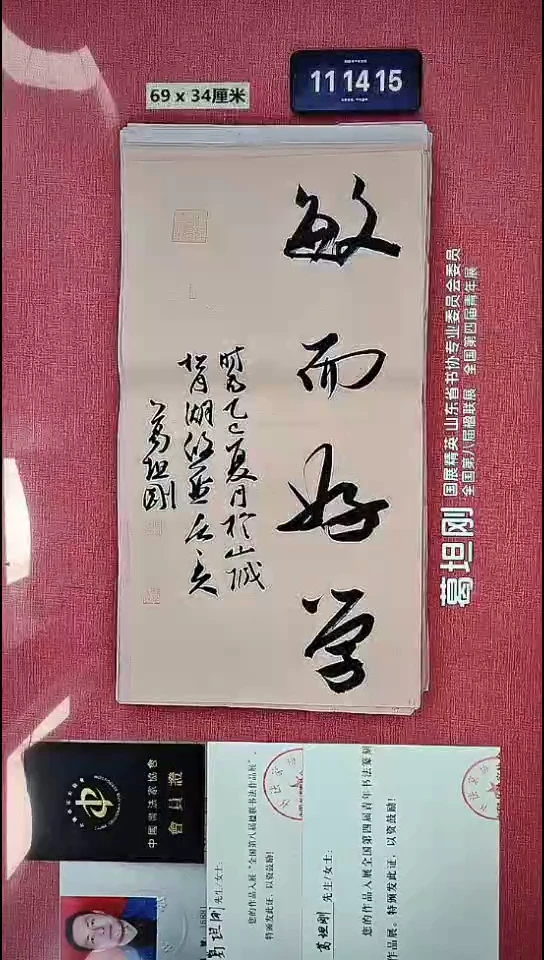 69 x 34厘米
11 14 15
敏而好学
时为乙巳夏月于山城
葛坦刚
葛坦刚
国展精英 山东省书协专业委员会委员
全国第八届楹联展 全国第四届青年展
中國書法家協會
會員證
葛坦刚 先生/女士:
您的作品入展“全国第八届楹联书法作品展”。
特颁发此证,以资鼓励!
葛坦刚 先生/女士:
您的作品入展全国第四届青年书法篆刻
作品展。特颁发此证,以资鼓励!